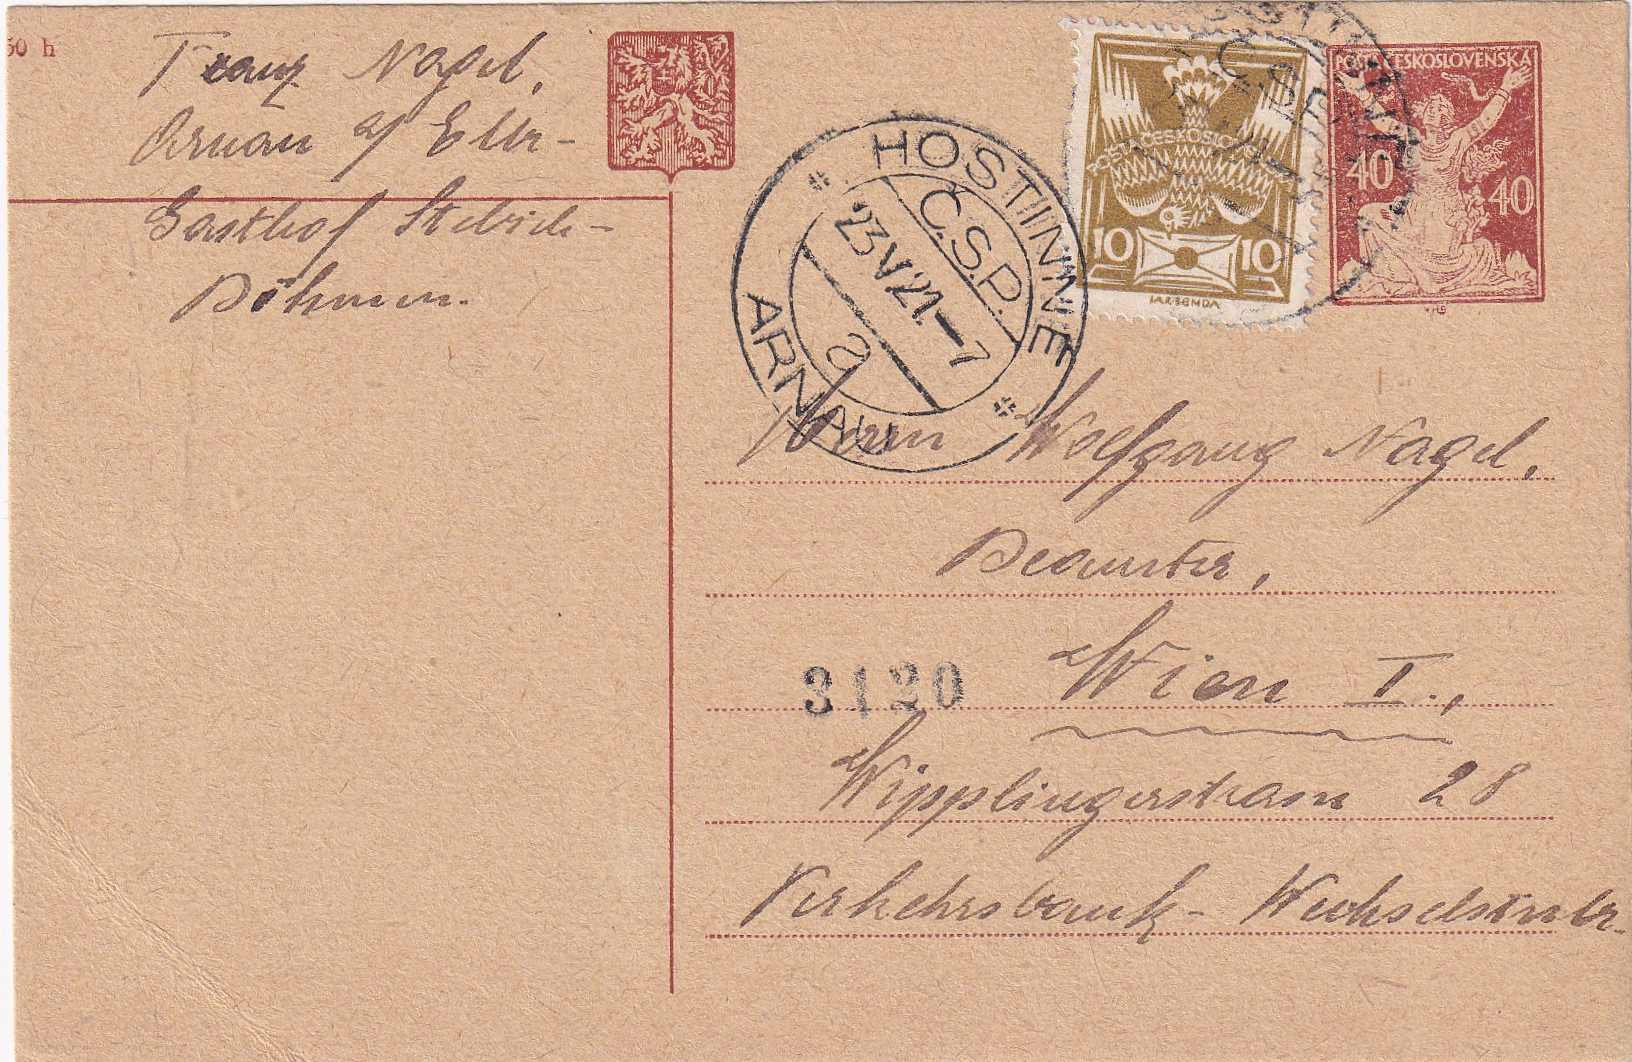 50 h
Franz Nagel,
Arnau a/ Elbe-
Gasthof
Böhmen.
HOSTINNÉ
Č.S.P.
23 V 21.-7
a
ARNAU
POŠTA ČESKOSLOVENSKÁ
10 10
JAK. BENDA
Č.S.P.
POŠTA ČESKOSLOVENSKÁ
40 40
Herrn Wolfgang Nagel,
Beamter,
3120
Wien I.,
Wipplingerstrasse 28
Verkehrsbank- Wechselstube.